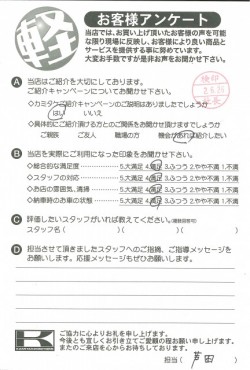 軽
お客様アンケート
当店では、お買い上げ頂いたお客様の声を可能
な限り現場に反映し、お客様により良い商品と
サービスを提供する事に努めています。
大変お手数ですが是非お声をお聞かせ下さい。
A 当店はご紹介を大切にしております。
ご紹介キャンペーンについてお聞かせ下さい。
◇カミタケご紹介キャンペーンのご説明はありましたでしょうか
はい いいえ
◇具体的にご紹介頂ける方とのご関係をお聞かせ頂けますでしょうか
ご親族 ご友人 職場の方 機会があれば紹介したい
検印
店長
B 当店を実際にご利用になった印象をお聞かせ下さい。
◇総合的な満足度 5.大満足 4.満足 3.ふつう 2.やや不満 1.不満
◇スタッフの対応 5.大満足 4.満足 3.ふつう 2.やや不満 1.不満
◇お店の雰囲気、清掃 5.大満足 4.満足 3.ふつう 2.やや不満 1.不満
◇納車時のお車の状態 5.大満足 4.満足 3.ふつう 2.やや不満 1.不満
C 評価したいスタッフがいれば教えてください。(複数回答可)
スタッフ名( )( )( )
D 担当させて頂きましたスタッフへのご指摘、ご指導メッセージを
お願いします。応援メッセージもぜひお願いします。
K
ご協力に心よりお礼を申し上げます。
今後とも宜しくお引き立てご愛顧の程お願い申し上げます。
またのご来店を心からお待ちしております。
担当( 芦田 )